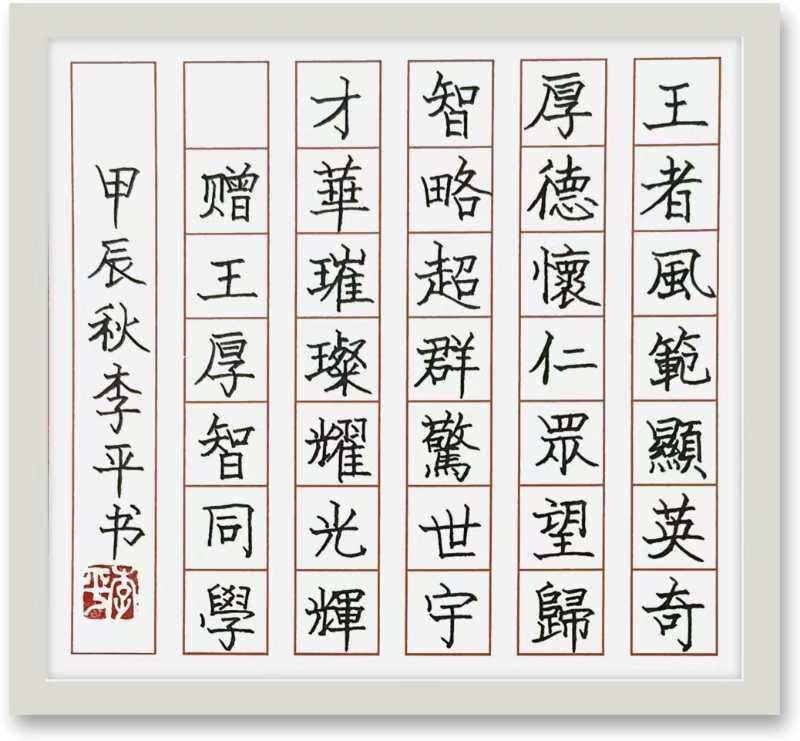 王者風範顯英奇
厚德懷仁眾望歸
智略超群驚世宇
才華璀璨耀光輝
赠王厚智同學
甲辰秋李平书
李平